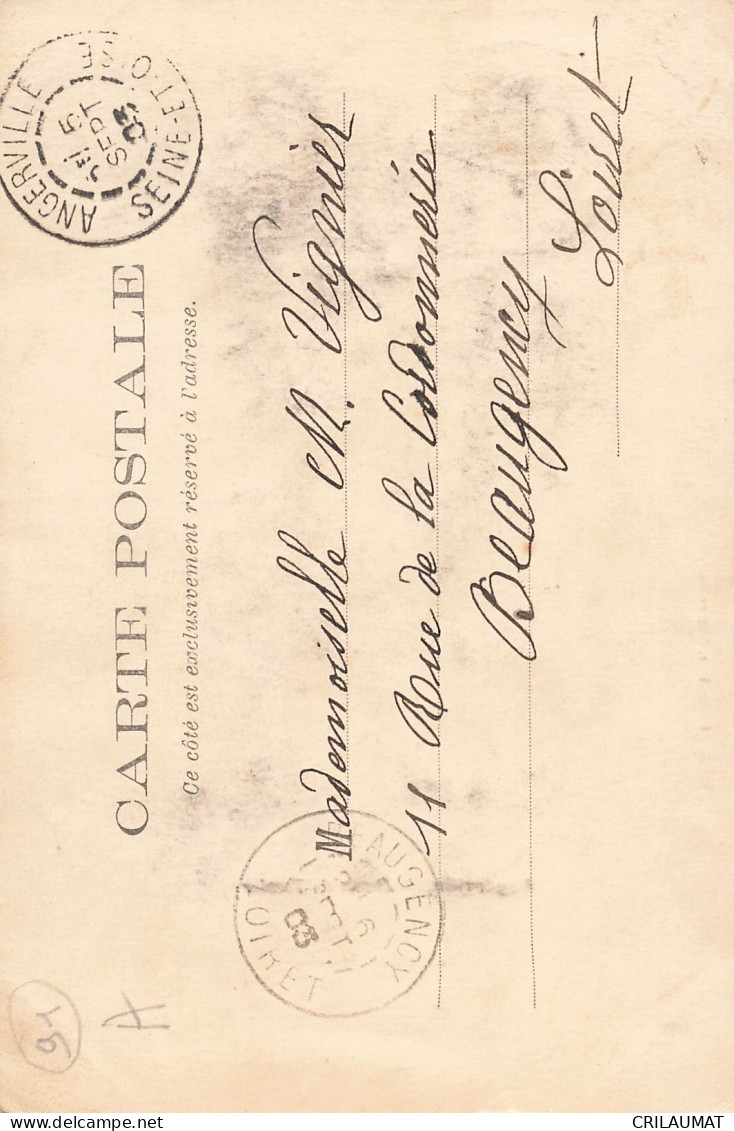 CARTE POSTALE
Ce côté est exclusivement réservé à l'adresse.
ANGERVILLE
5
SEPT
03
SEINE-ET-OISE
Mademoiselle M. Vignier
11 Rue de la Cordonnerie
Beaugency
Loiret
BEAUGENCY
6
SEPT
03
LOIRET
91
A
CRILAUMAT